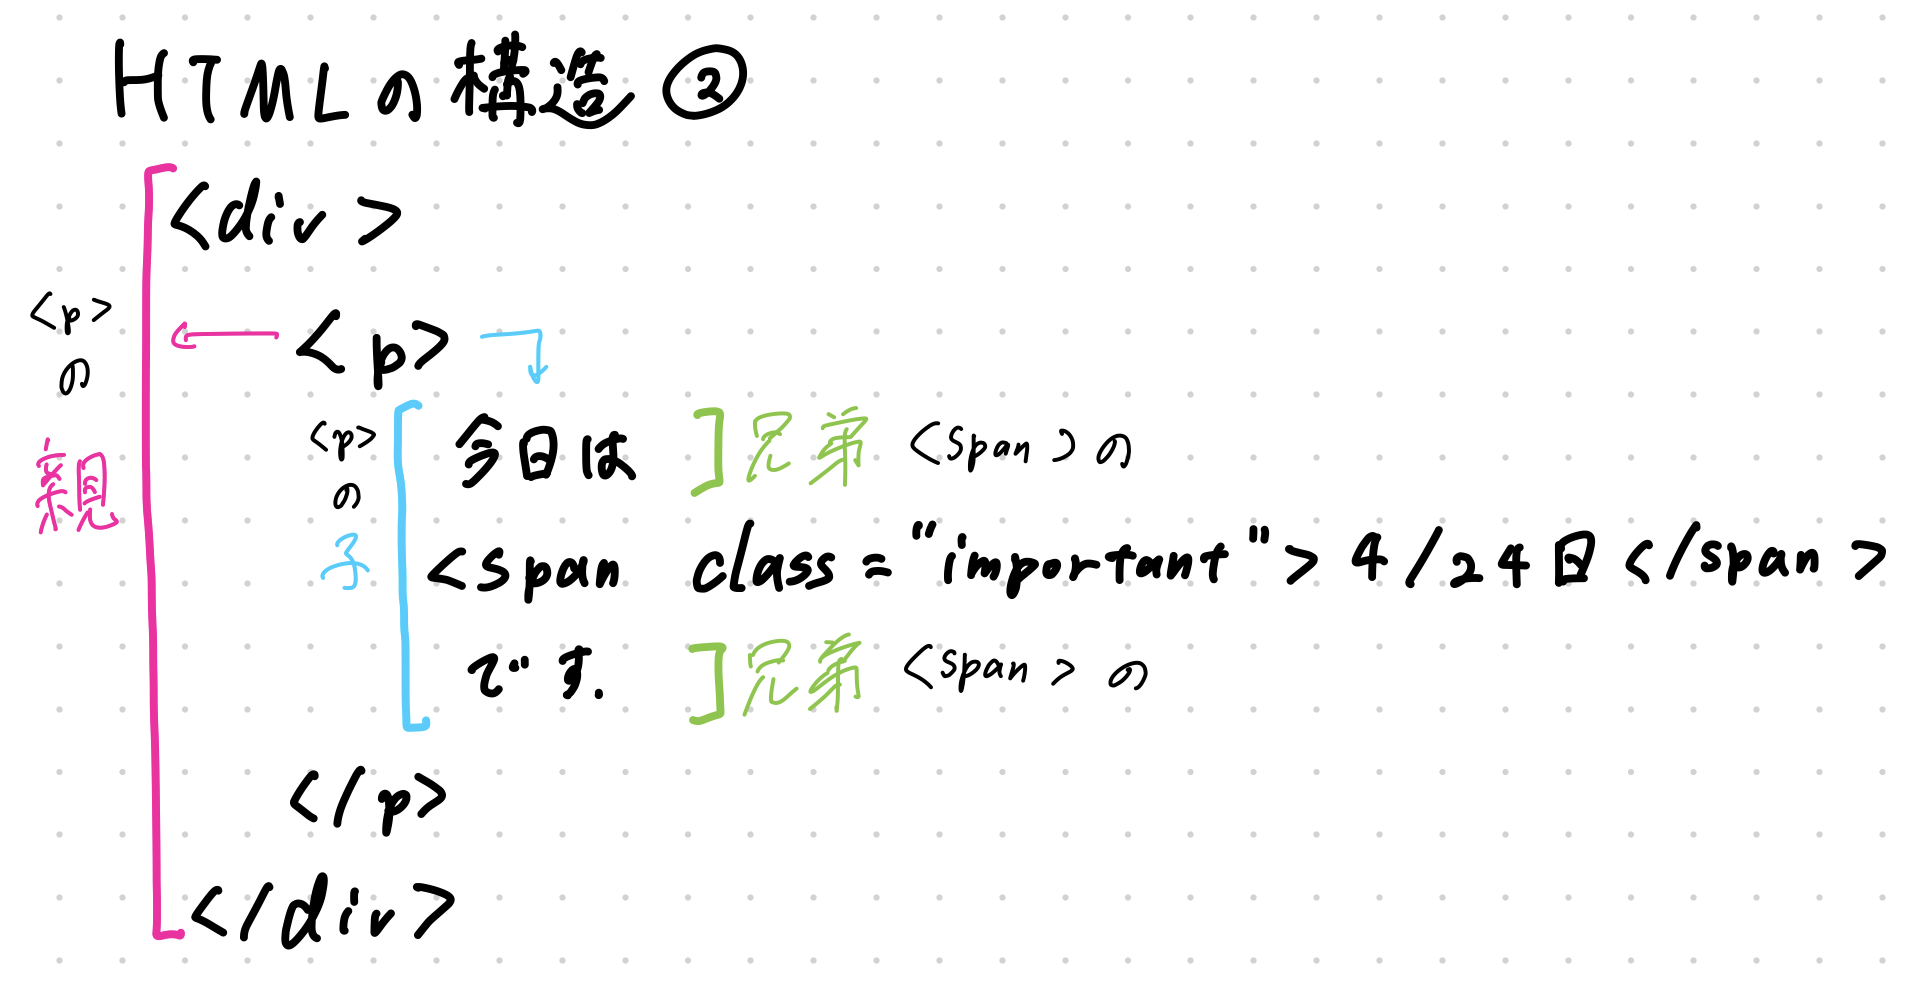 HTMLの構造 ②
<div>
<p>
の
親
<p>
<p>
の
子
今日は
兄弟 <span>の
<span class="important">4/24日</span>
です.
兄弟 <span>の
</p>
</div>